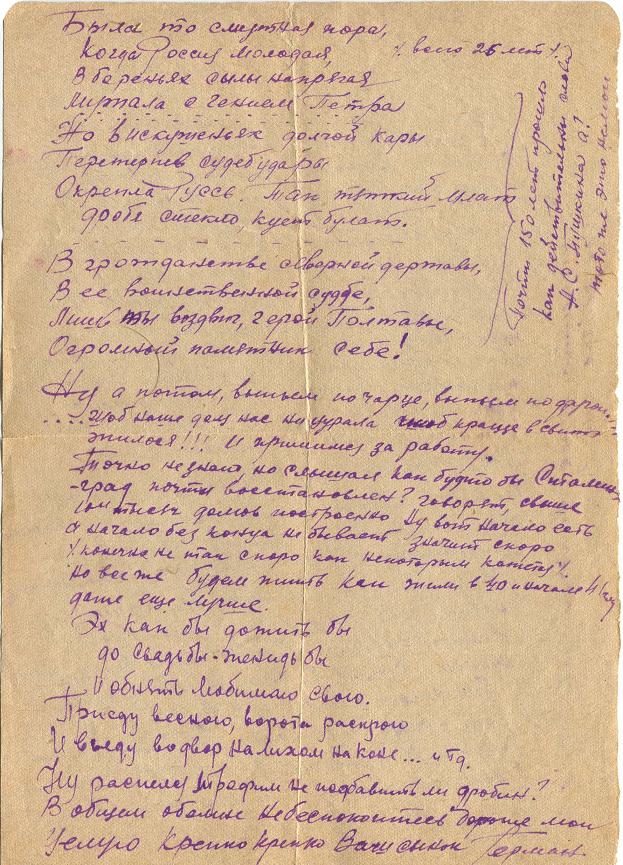 Была то смутная пора,
Когда Россия молодая, /. всего 25 лет!/.
В бореньях силы напрягая
Мужала с гением Петра
Но в искушеньях долгой кары
Перетерпев судеб удары
Окрепла Руссь. Так тяжкий млат
дробя стекло кует булат.
В гражданстве северной державы,
В ее воинственной судбе,
Лишь ты воздвиг, герой Полтавы,
Огромный памятник себе!
Почти 150 лет прошло
как действительны слова
А.С. Пушкина а?
Ну а потом, выпьем по чарце, выпьем по другой
.... щоб наше
жилося!!! И примимся за работу.
Точно не знаю, но слышал как будто бы Сталин-
-град почти восстановлен? говорят, свыше
тысяч домов построено Ну вот начало есть
а начало без конца не бывает значит скоро
/. конечно не так скоро как некоторым кажется/.
но все же будем жить как жили в 40 и начале 41 году
даже еще лучше.
Эх как бы дожить бы
до свадьбы-женидьбы
и обнять любимаю свою.
Приеду весною, ворота раскрою
И въеду во двор на лихом на коне... итд.
Ну распелся Трофим не подбавить ли дробин?
В общем обо мне небеспокоитесь хорошие мои
Целую крепко крепко Ваш сынок Герман.